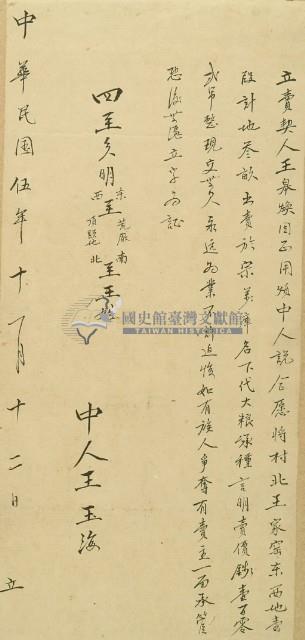 立賣契人王皋煥因正用煩中人説合愿將村北王家窑東西地壹
段計地叁畝出賣於宗弟 名下代大粮承種言明賣價錢壹百零
弍吊整現交無欠永远為業不許迫悔如有族人爭奪有賣主一面承管
恐後無凴立字為証
四至欠明 東至荒厰 南至王 西至 北至
中人王玉海
中華民國伍年十一月十二日 立
國史館臺灣文獻館
TAIWAN HISTORICA